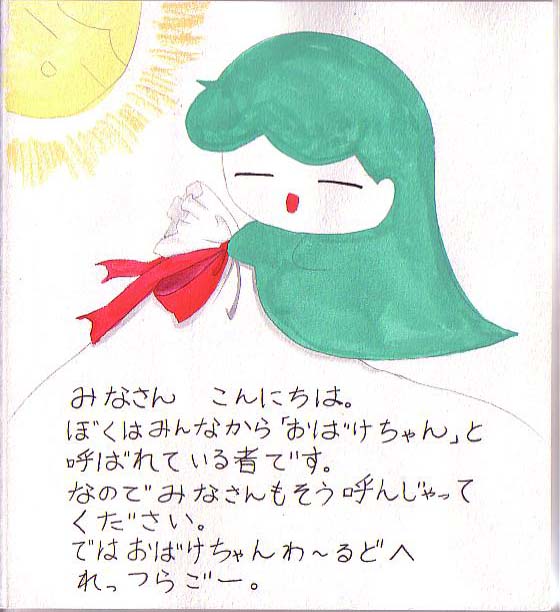 みなさん　こんにちは。
ぼくはみんなから「おばけちゃん」と
呼ばれている者です。
なのでみなさんもそう呼んじゃって
ください。
ではおばけちゃんわ～るどへ
れっつらごー。